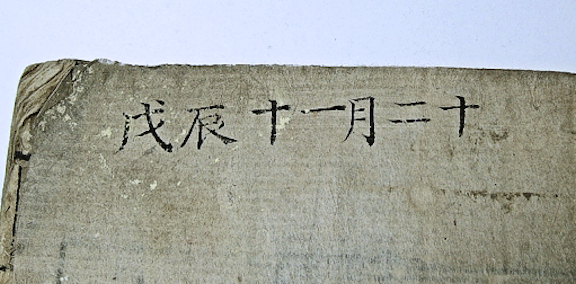 戊辰十一月二十